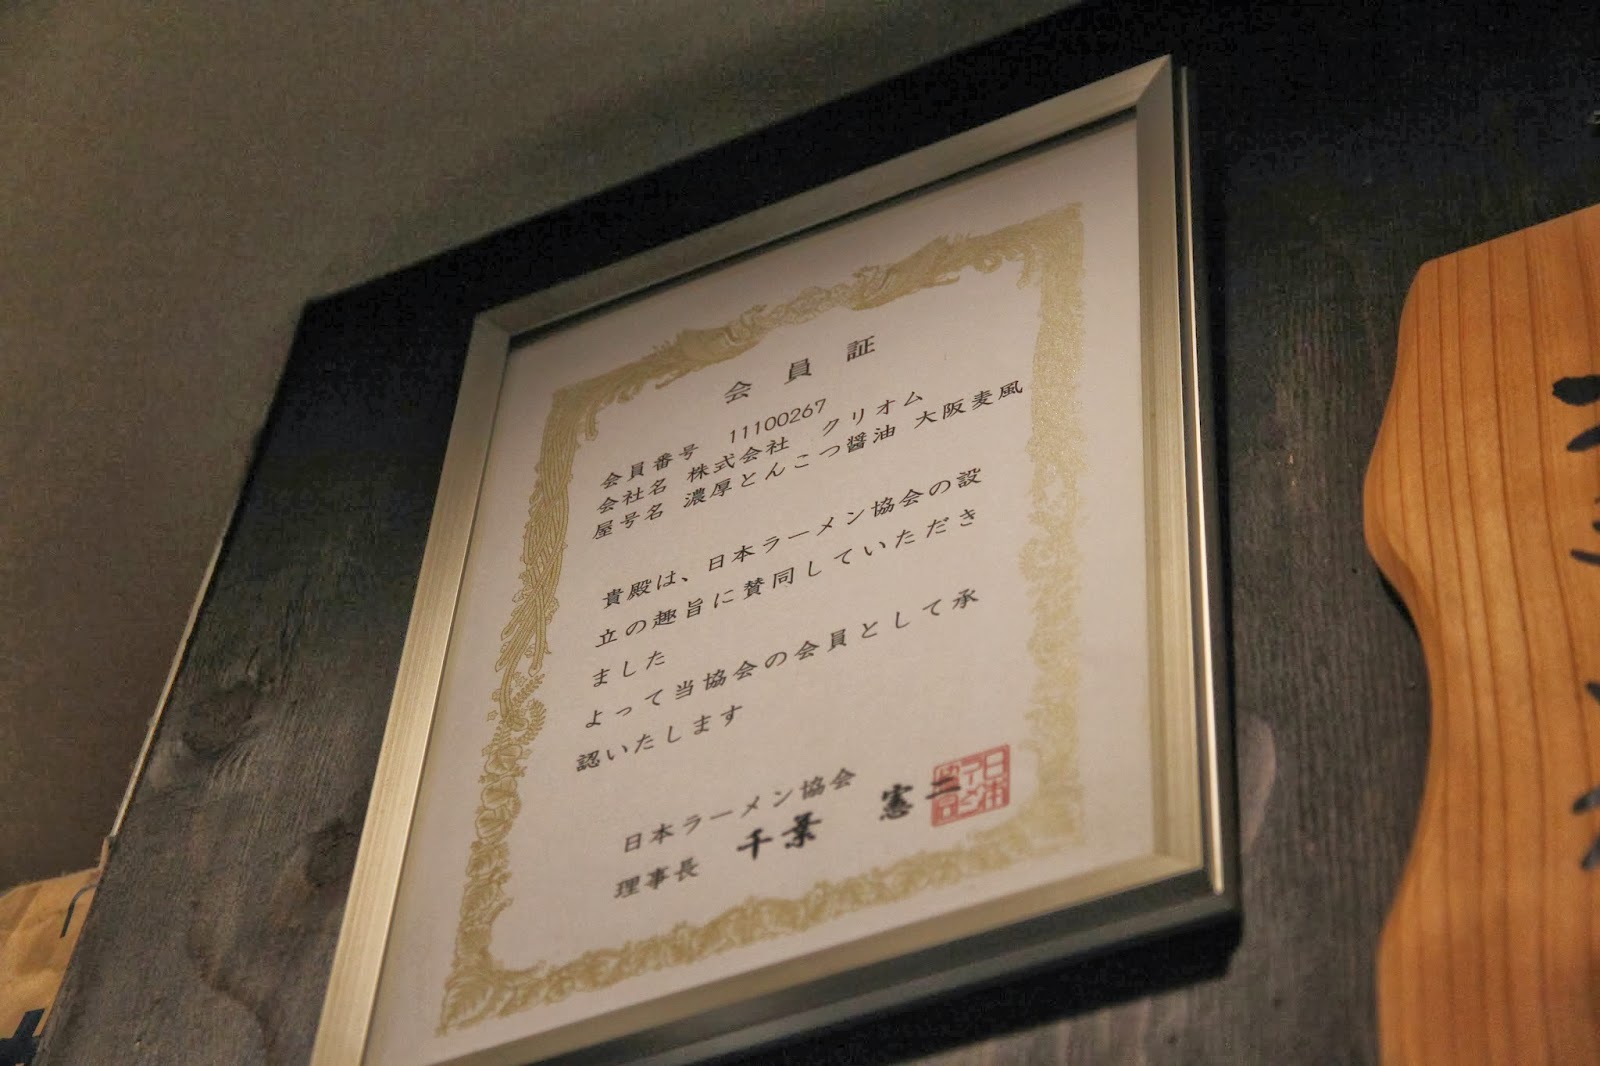 会員証
会員番号 11100267
会社名 株式会社 クリオム
屋号名 濃厚とんこつ醤油 大阪麦風
貴殿は、日本ラーメン協会の設
立の趣旨に賛同していただき
ました
よって当協会の会員として承
認いたします
日本ラーメン協会
理事長 千葉 憲二